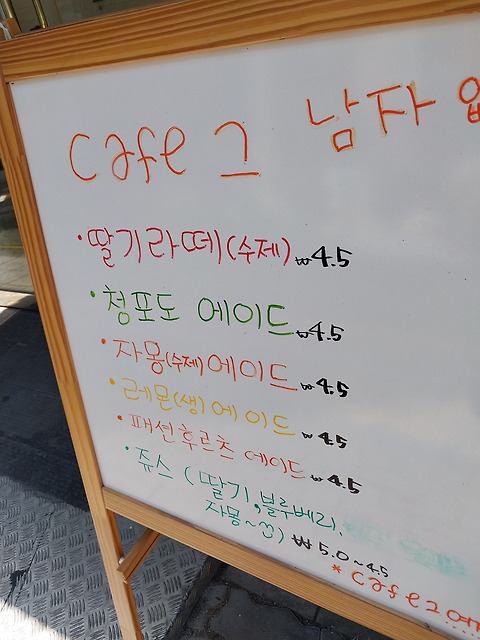 Cafe 그 남자
·딸기라떼(수제) ₩4.5
·청포도 에이드 ₩4.5
·자몽(수제)에이드 ₩4.5
·레몬(생)에이드 ₩4.5
·패션후르츠 에이드 ₩4.5
·쥬스 (딸기, 블루베리,
자몽~등) ₩5.0~4.5
*Cafe그